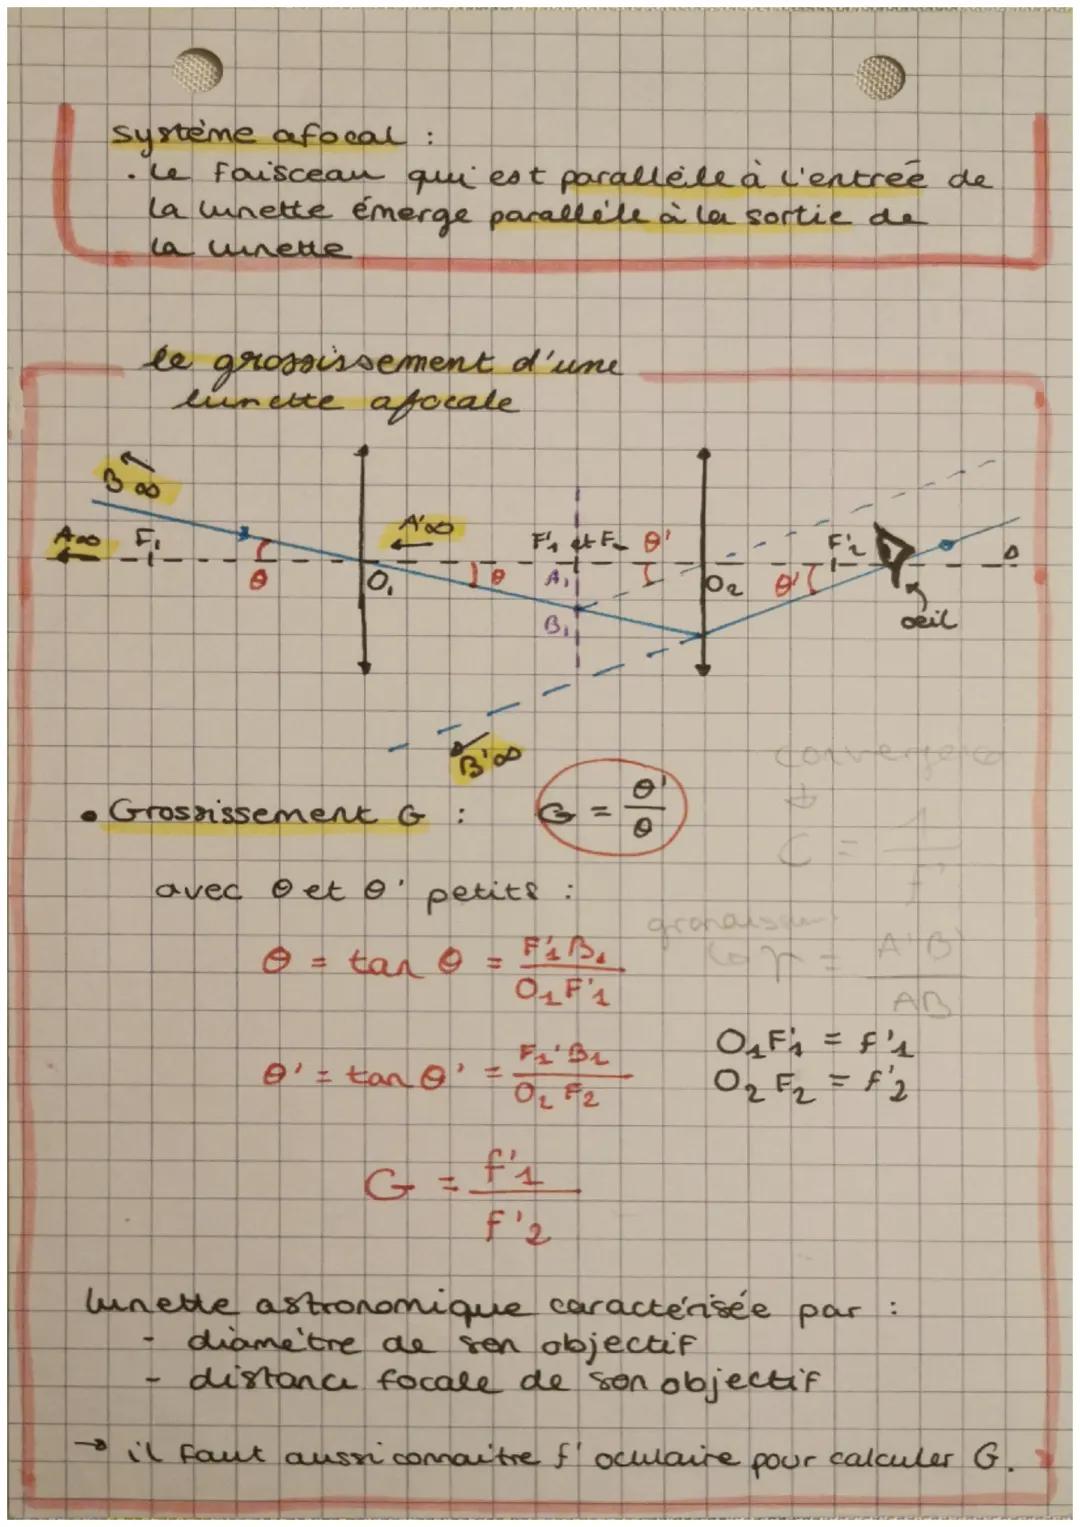 système afocal :
. Le faisceau qui est parallèle à l'entrée de
la lunette émerge parallèle à la sortie de
la lunette
le grossissement d'une
lunette afocale
B∞
A∞ F₁ A'∞ F'₁ et F₂ θ' F'₂ Δ
θ O₁ θ A₁ O₂ θ' oeil
B₁
B'∞
convergence
• Grossissement G : G = θ'/θ
C = 1/f'
avec θ et θ' petits :
θ = tan θ = F'₁B₁/O₁F'₁
γ = A'B'/AB
O₁F'₁ = f'₁
θ' = tan θ' = F₁'B₁/O₂F₂
O₂F₂ = f'₂
G = f'₁/f'₂
lunette astronomique caractérisée par :
- diamètre de son objectif
- distance focale de son objectif
→ il faut aussi connaitre f' oculaire pour calculer G.